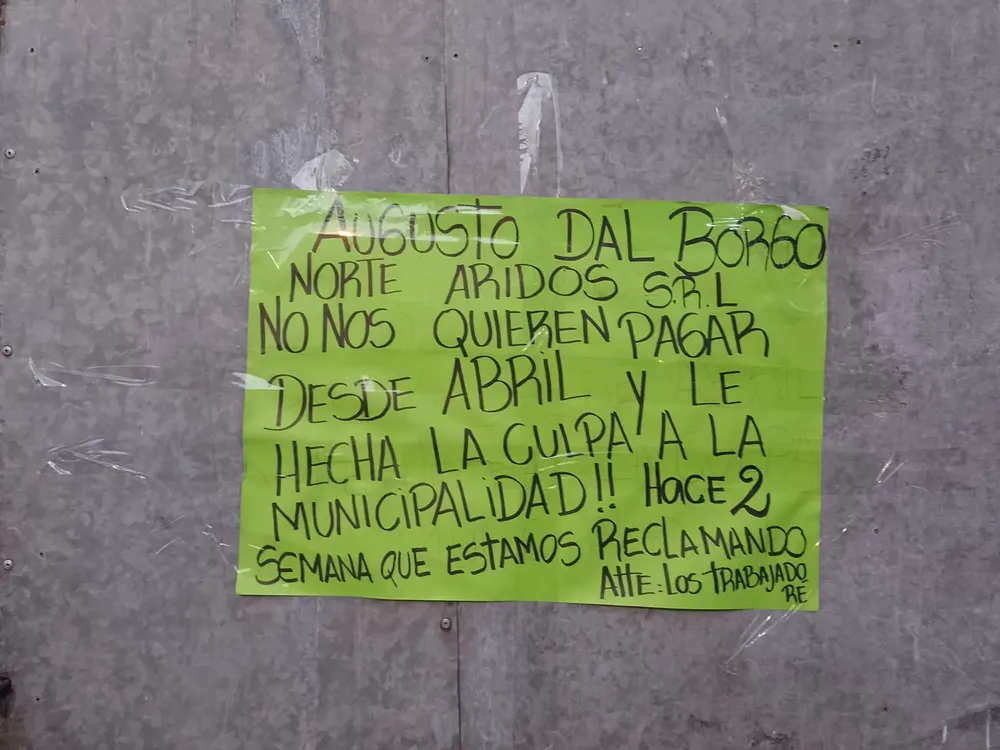 AUGUSTO DAL BORGO
NORTE ARIDOS S.R.L
NO NOS QUIEREN PAGAR
DESDE ABRIL y LE
HECHA LA CULPA A LA
MUNICIPALIDAD!! HACE 2
SEMANA QUE ESTAMOS RECLAMANDO
Atte: Los TRABAJADO
RE